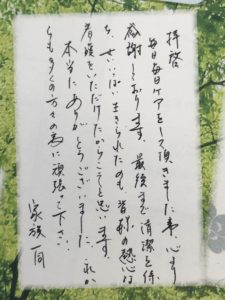 拝啓
毎日毎日ケアをして頂きました事心より
感謝しております。最後まで清潔を保
ち、せいいっぱい生きられたのも皆様の熱心な
看護をいただけたからこそと思います。
本当にありがとうございました。これか
らも多くの方々の為に頑張って下さい。
家族一同